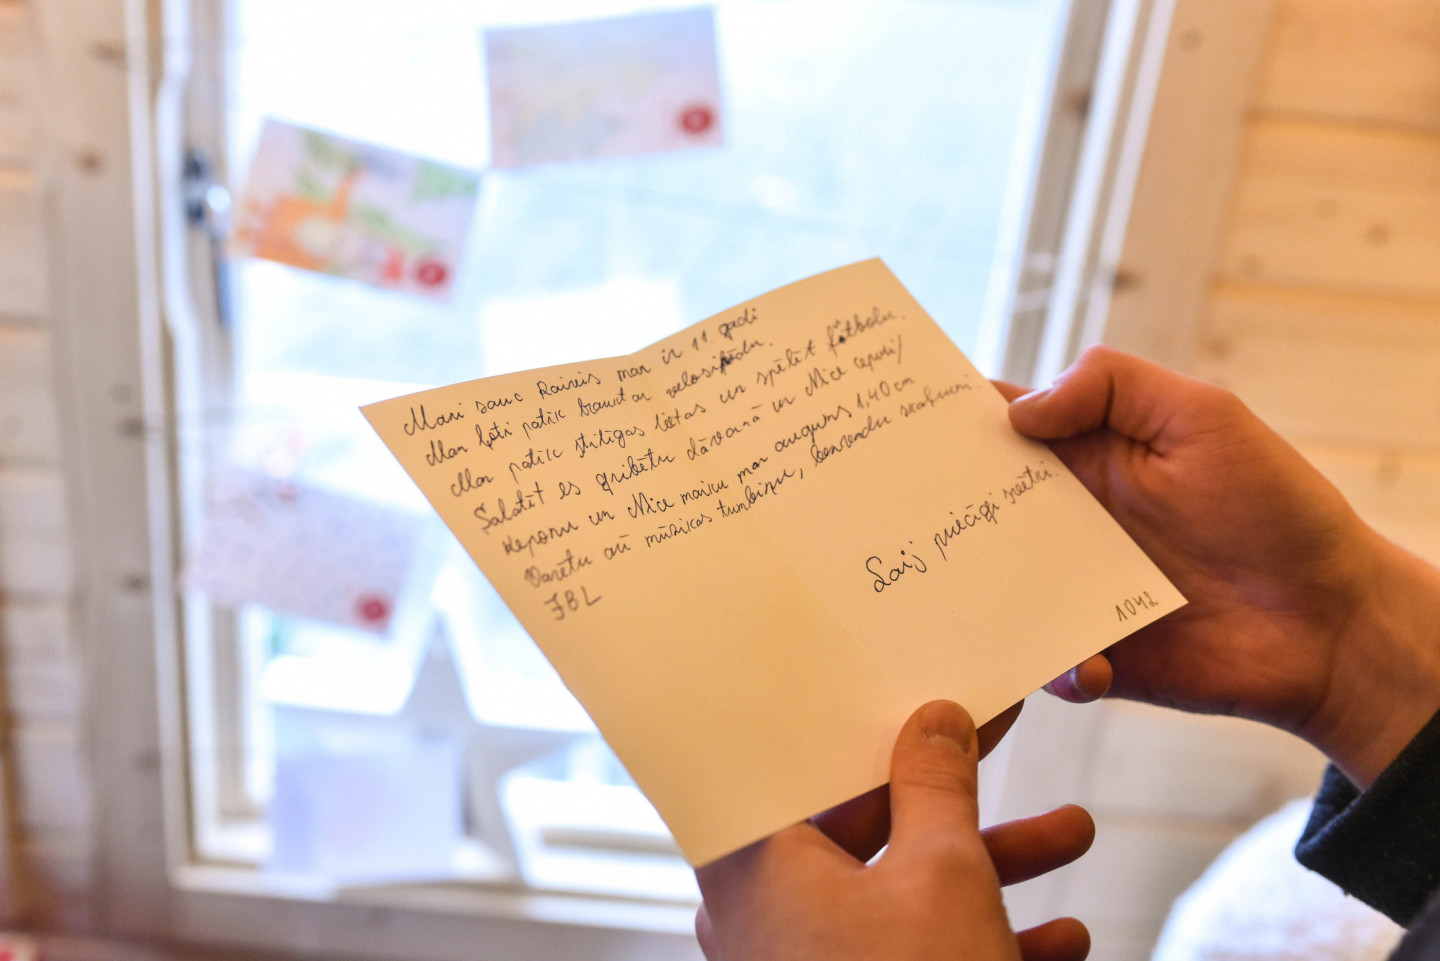 Mani sauc Raivis man ir 11. gadi
Man ļoti patīk braukt ar velosipēdu.
Man patīk stilīgas lietas un spēlēt futbolu.
Salatēt es gribētu dāvanā un Nice cepuri/
keponu un Nice maicu man augums 1.40 cm
Varētu arī mūzikas tumbiņu, skaļruni.
JBL
Laij priecīgi svētki.
1042